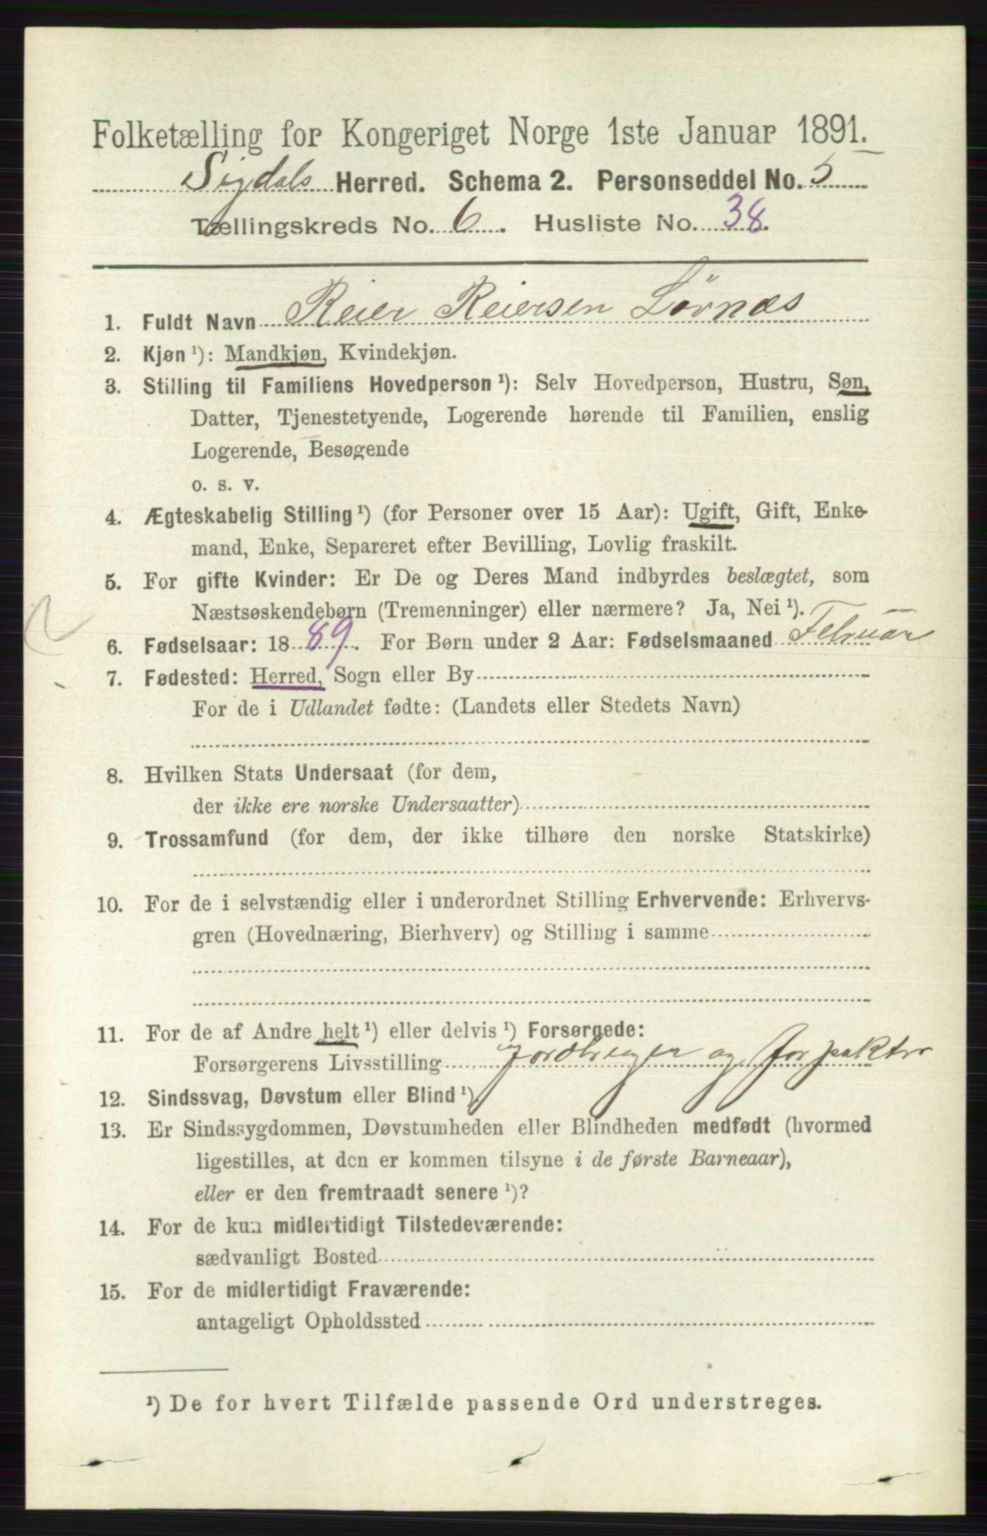 Folketælling for Kongeriget Norge 1ste Januar 1891.
Sigdals Herred. Schema 2. Personseddel No. 5
Tællingskreds No. 6. Husliste No. 38.
1. Fuldt Navn Reier Reiersen Lövnæs
2. Kjøn ¹): Mandkjøn, Kvindekjøn.
3. Stilling til Familiens Hovedperson ¹): Selv Hovedperson, Hustru, Søn,
Datter, Tjenestetyende, Logerende hørende til Familien, enslig
Logerende, Besøgende
o. s. v.
4. Ægteskabelig Stilling ¹) (for Personer over 15 Aar): Ugift, Gift, Enke-
mand, Enke, Separeret efter Bevilling, Lovlig fraskilt.
5. For gifte Kvinder: Er De og Deres Mand indbyrdes beslægtet, som
Næstsøskendebørn (Tremenninger) eller nærmere? Ja, Nei ¹).
6. Fødselsaar: 1889. For Børn under 2 Aar: Fødselsmaaned Februar
7. Fødested: Herred, Sogn eller By
For de i Udlandet fødte: (Landets eller Stedets Navn)
8. Hvilken Stats Undersaat (for dem,
der ikke ere norske Undersaatter)
9. Trossamfund (for dem, der ikke tilhøre den norske Statskirke)
10. For de i selvstændig eller i underordnet Stilling Erhvervende: Erhvervs-
gren (Hovednæring, Bierhverv) og Stilling i samme
11. For de af Andre helt ¹) eller delvis ¹) Forsørgede:
Forsørgerens Livsstilling Jordbruger og Forpaktr
12. Sindssvag, Døvstum eller Blind ¹)
13. Er Sindssygdommen, Døvstumheden eller Blindheden medfødt (hvormed
ligestilles, at den er kommen tilsyne i de første Barneaar),
eller er den fremtraadt senere ¹)?
14. For de kun midlertidigt Tilstedeværende:
sædvanligt Bosted
15. For de midlertidigt Fraværende:
antageligt Opholdssted
¹) De for hvert Tilfælde passende Ord understreges.